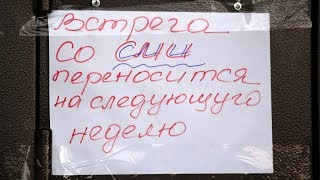 Встрега
со сми
переносится
на следующуго
неделю